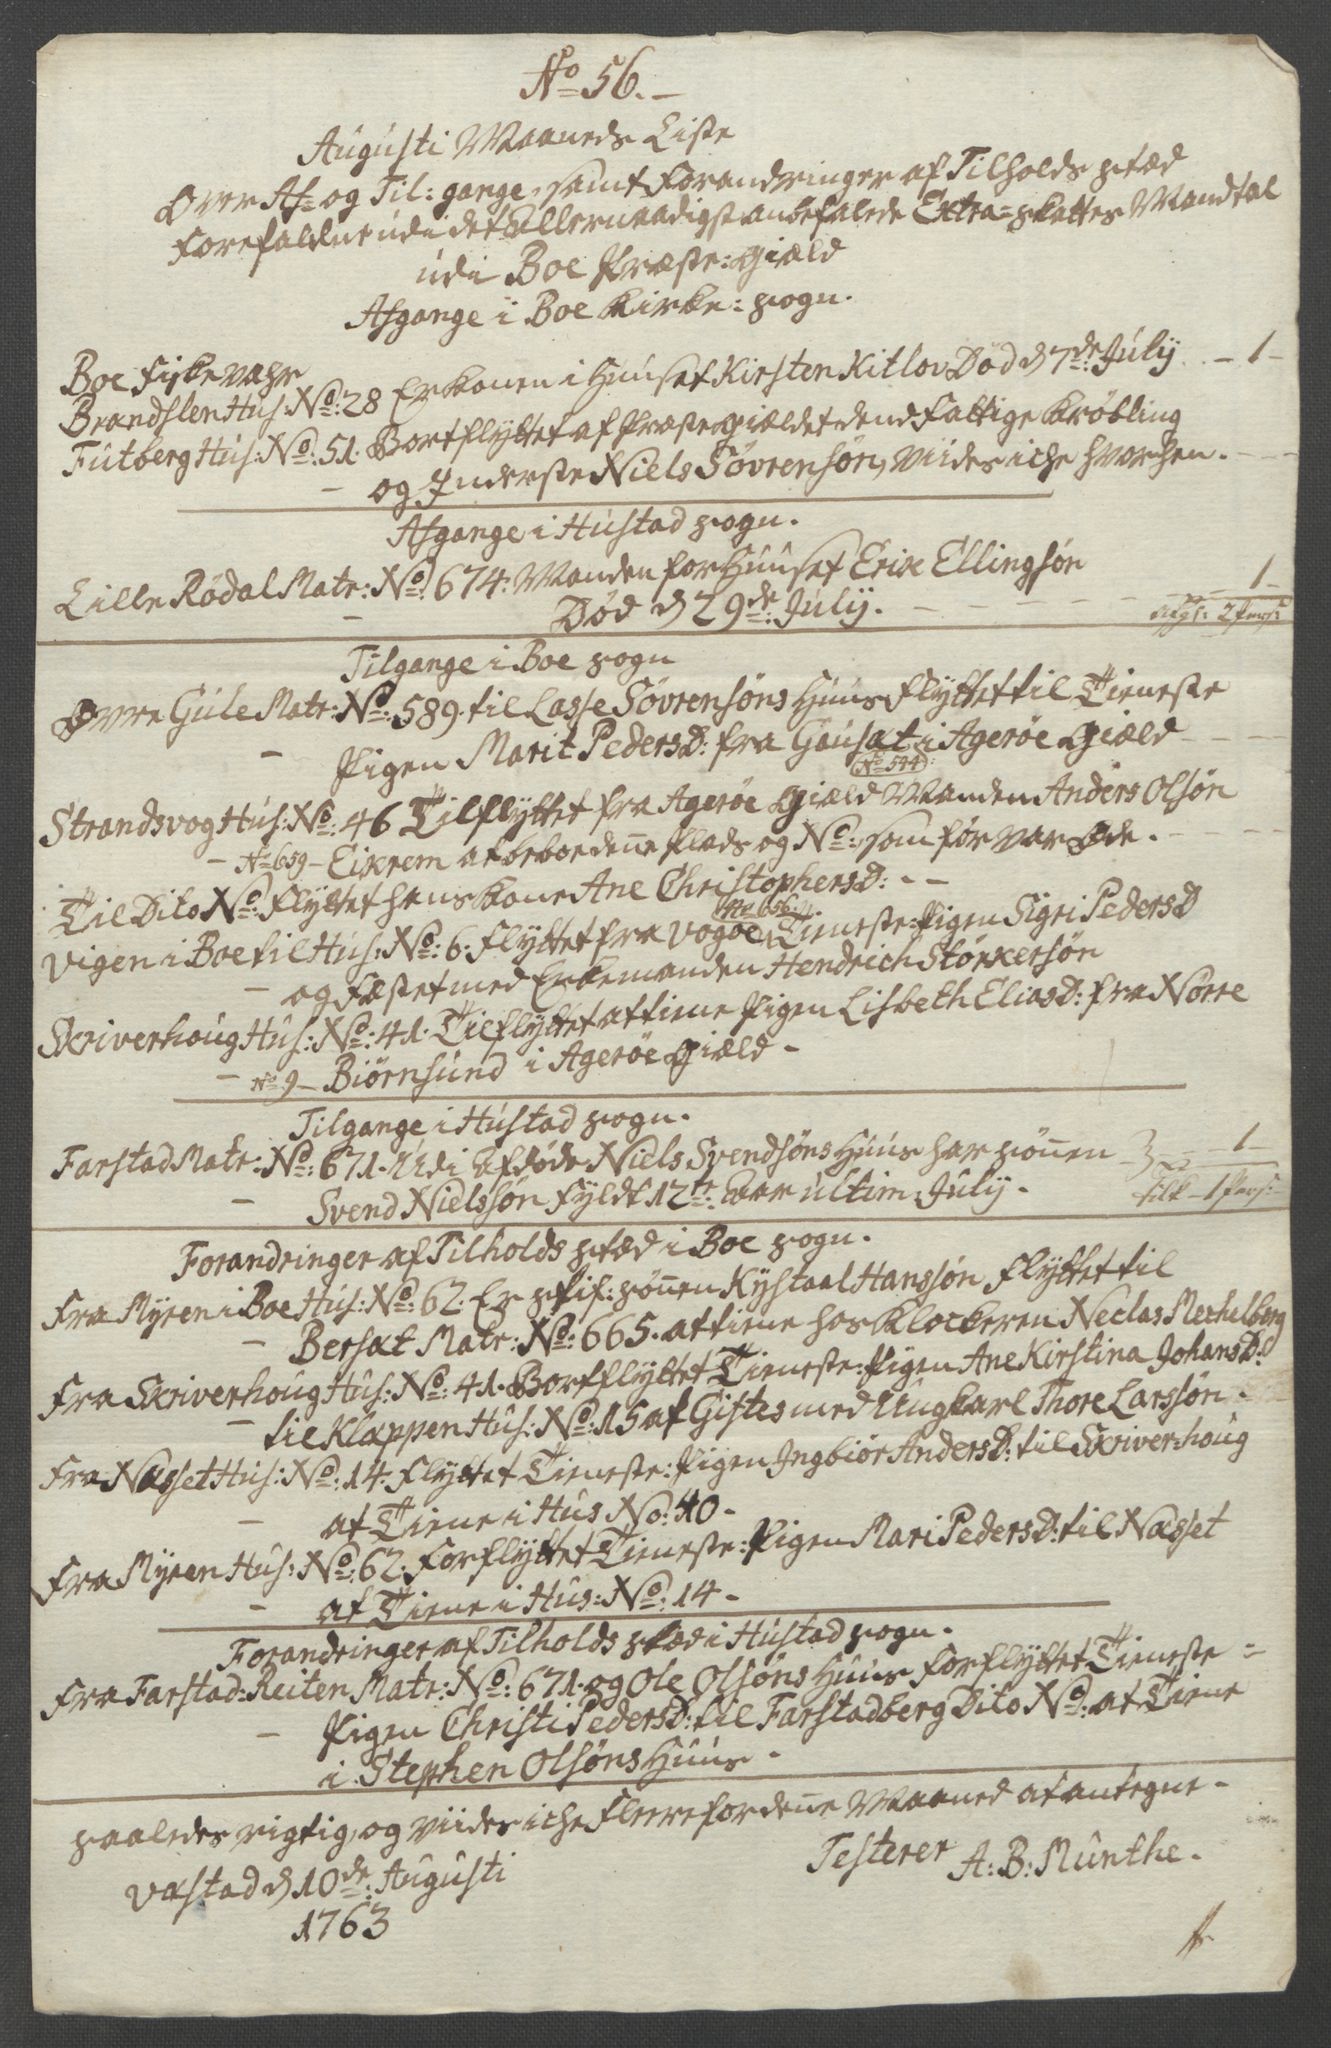 No 56.-
Augusti Maaneds Liste
Over Af= og Til: gange, samt Forandringer af Tilholds stæd
Forefaldne udi det Allernaadigst anbefalede Extra=skattes Mandtal
udi Boe Præste:Giæld
Afgange i Boe Kirke: sogn.
Boe Fiskevahr
Brandslen Hus: No: 28 Er konen i Huuset Kirsten Kitlov Død d 7de July - 1-
Futberg Hus: No: 51. Bortflyttet af Præstegiældet dend Fattige Krøbling
- og Inderste Niels Søvrensøn, viides iche hvorhen. - - -
Afgange i Hustad sogn.
Lille Rødal Matr: No: 674: Manden for Huuset Erix Ellingsøn
- Død d 29de: July. - - - - - - 1-
afg: 2 Pers:
Tilgange i Boe sogn
Øvre Gule Matr: No: 589. til Lasse Søvrensøns Huus flyttet til Tieneste
- Pigen Marit PedersD: fra Gausæt i Agerøe Giæld - - -
No 544
Strandsvog Hus: No: 46 Tilflyttet fra Agerøe Giæld Manden Anders Olsøn
- No 659 - Eixrem at beboe denne Plads og No: som før var Øde. - - -
Til Dito No: flyttet hans kone Ane ChristophersD: - -
No 656.
Vigen i Boe til Hus: No: 6. flyttet fra Vogøe Tieneste: Pigen Sigri PedersD
- og Fæstet med Enkemanden Hendrich Størxersøn
Skriverhoug Hus: No: 41. Tilflyttet at tiene Pigen Lisbeth EliasD: fra Nørre
- No 9 - Biørnsund i Agerøe Giæld -
Tilgange i Hustad sogn.
Farstad Matr: No: 671. Udi Afdøde Niels Svendsøns Huus har sønnen - - 1-
- Svend Nielssøn fyldt 12te Aar ultim: July.
Tilk - 1 Pers:
Forandringer af Tilholds stæd i Boe sogn.
Fra Myren i Boe Hus: No: 62. Er stif: sønnen Kystaal Hanssøn flyttet til
- Bersæt Matr: No: 665. at tiene hos Klockeren Neclas Mechelborg
Fra Skriverhoug Hus: No: 41. Bortflyttet Tieneste: Pigen Ane Kirstina JohansD:
- til Klappen Hus: No: 15 at Giftes med Ungkarl Thore Larssøn.
Fra Næsset Hus: No: 14. flyttet Tieneste: Pigen Ingbiør AndersD: til Skriverhoug
- at Tiene i Hus No: 40 -
Fra Myren Hus: No: 62. Forflyttet Tieneste: Pigen Mari PedersD: til Næsset
- at Tiene i Hus: No: 14 -
Forandringer af Tilholds stæd i Hustad sogn.
Fra Farstad: Reiten Matr: No: 671. og Ole Olsøns Huus forflyttet Tieneste =
- Pigen Christi PedersD: til Farstadberg Dito No: at Tiene
i Stephen Olsøns Huus.
saaledes rigtig, og viides iche fleere for denne Maaned at antegne.
Vastad d 10de: Augusti
1763
Testerer A: B: Munthe.